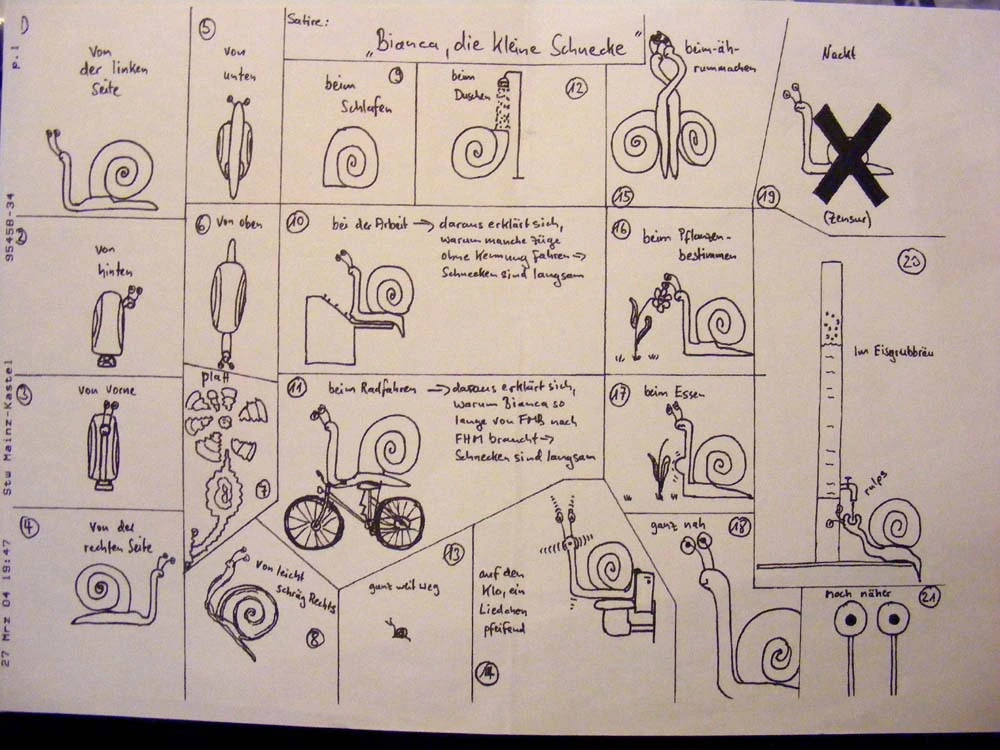 27 Mrz 04 19:47 Stw Mainz-Kastel 95458-34 p.1
Satire:
"Bianca, die kleine Schnecke"
1
von
der linken
Seite
2
von
hinten
3
von vorne
4
von der
rechten Seite
5
von
unten
6
von oben
platt
7
von leicht
schräg Rechts
8
9
beim
Schlafen
10
bei der Arbeit → daraus erklärt sich,
warum manche Züge
ohne Kennung fahren →
Schnecken sind langsam
11
beim Radfahren → daraus erklärt sich,
warum Bianca so
lange von FMB nach
FHM braucht →
Schnecken sind langsam
beim
Duschen
12
13
ganz weit weg
auf dem
Klo, ein
Liedchen
pfeifend
14
beim-äh-
rummachen
15
16
beim Pflanzen-
bestimmen
17
beim Essen
ganz nah
18
Nackt
19
(Zensur)
20
Im Eisgrubbräu
rülps
noch näher
21